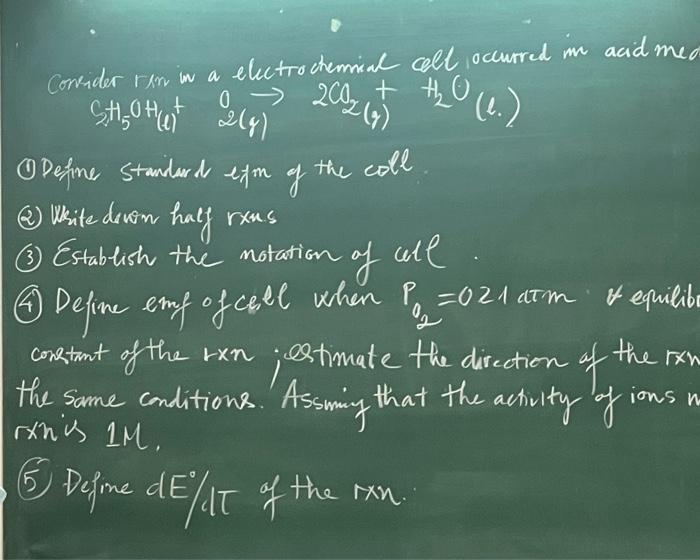 Consider rxn in a electrochemical cell, occurred in acid med
C₂H₅OH(l) + O₂(g) → 2CO₂(g) + H₂O(l.)
① Define standard efm of the cell.
② Write down half rxns
③ Establish the notation of cell.
④ Define emf of cell when P_O₂ = 021 atm & equilib
constant of the rxn; estimate the direction of the rxn
the same conditions. Assuming that the activity of ions
rxn is 1M.
⑤ Define dE°/dT of the rxn.